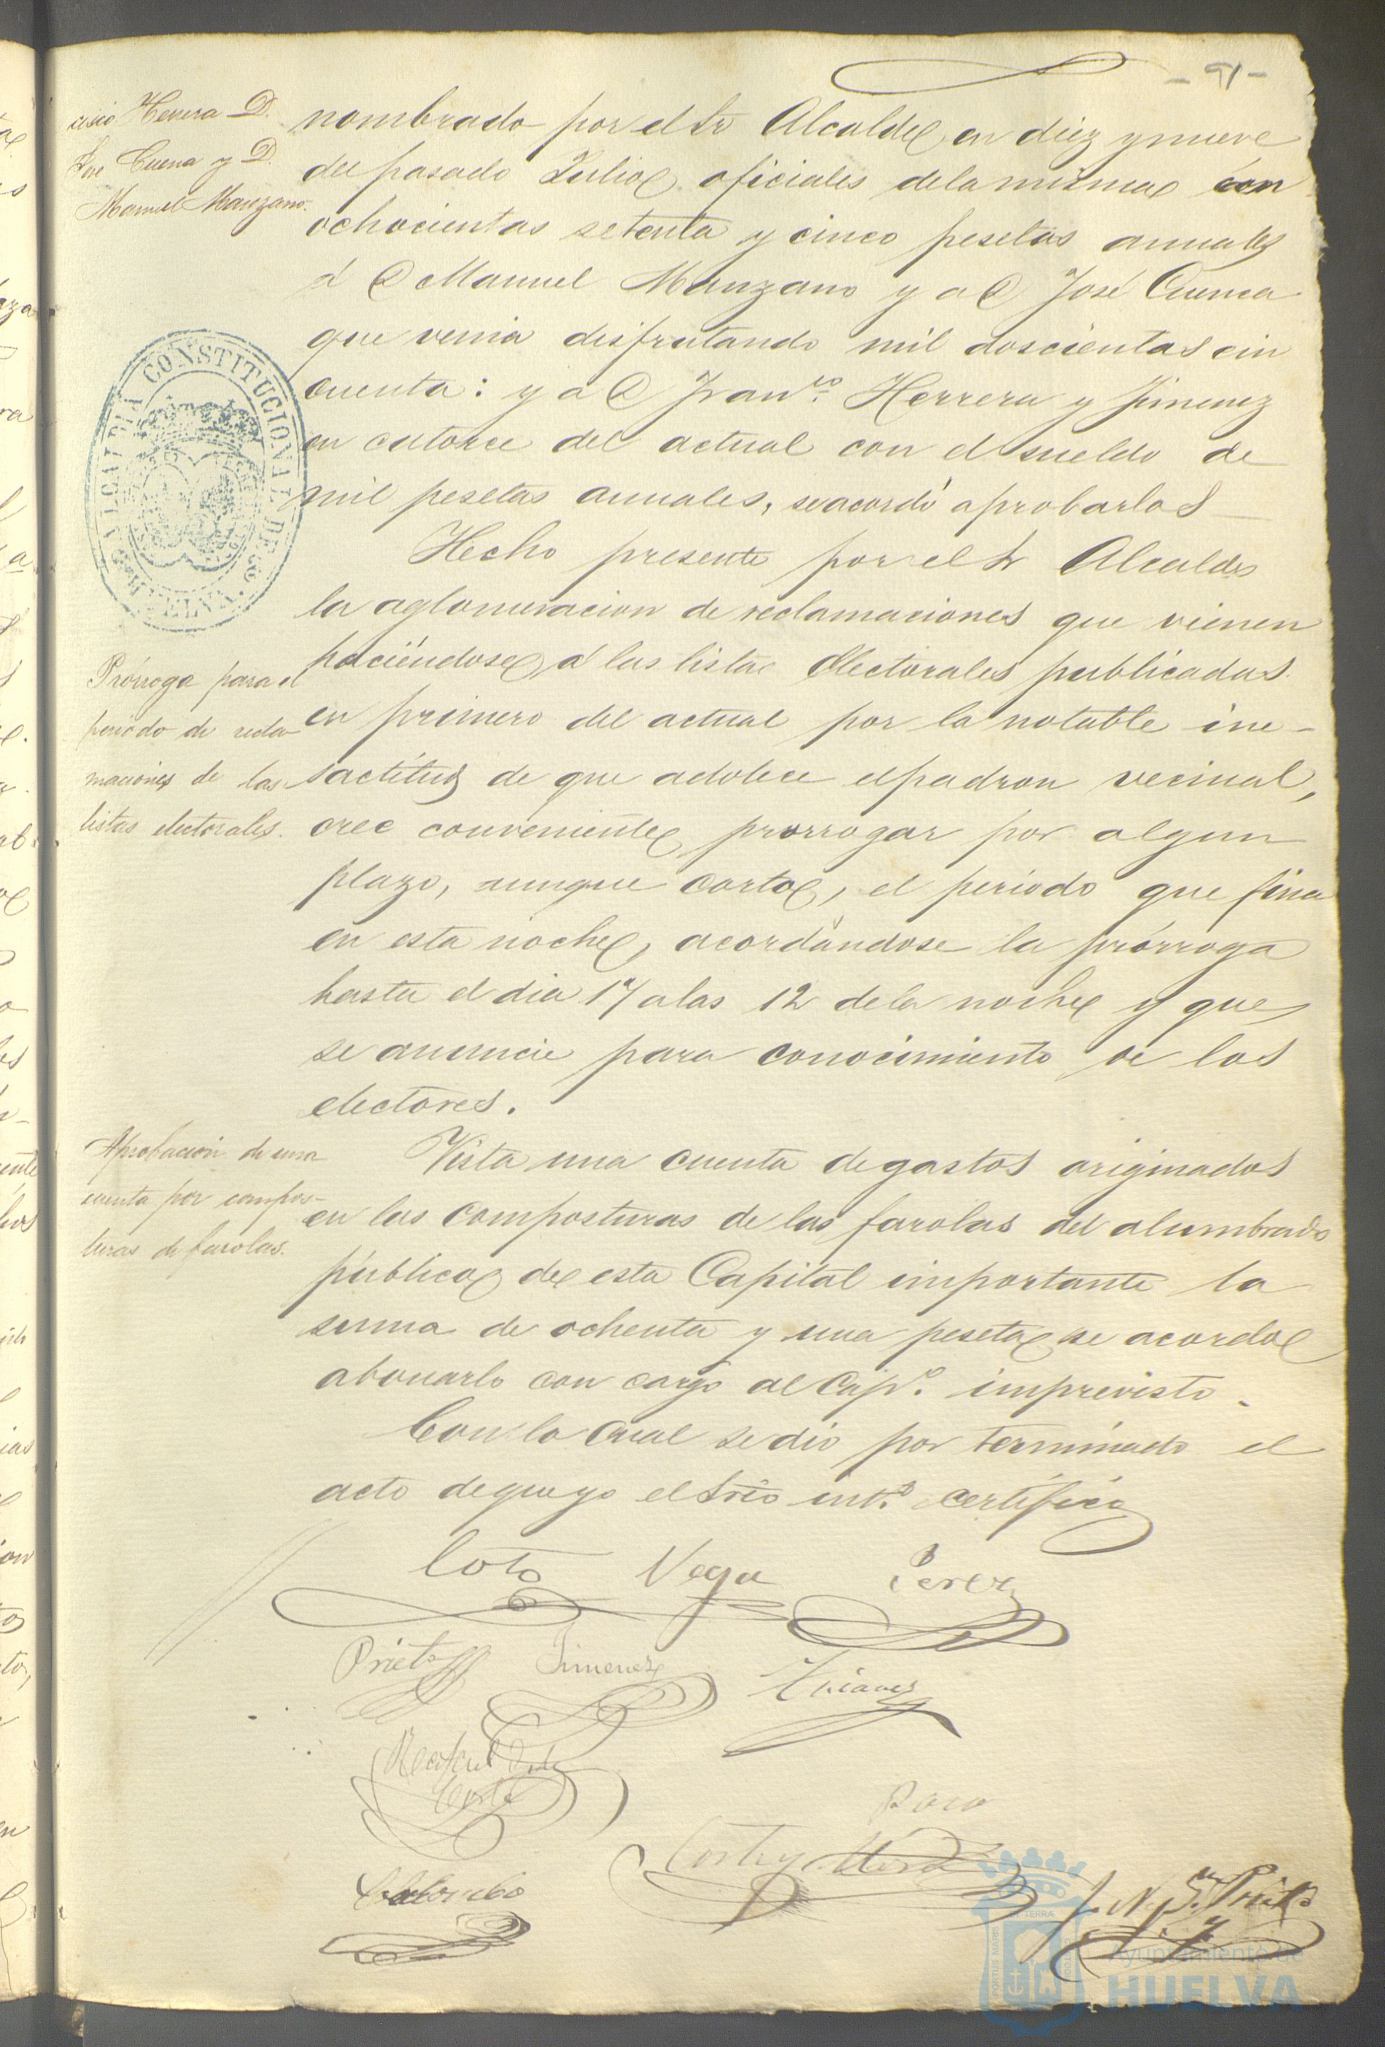 - 91 -
cisco Herrera D.
José Cuenca y D.
Manuel Manzano.
nombrado por el Sr Alcalde en diez y nueve
del pasado Julio oficiales de la misma con
ochocientas setenta y cinco pesetas anuales
á D Manuel Manzano y a D José Cuenca
que venia disfrutando mil doscientas cin
cuenta: y a D Franco. Herrera y Jimenez
en catorce del actual con el sueldo de
mil pesetas anuales, se acordó aprobarlos
ALCALDIA CONSTITUCIONAL DE
HUELVA
Prórroga para el
periodo de recla
maciones de las
listas electorales.
Hecho presente por el Sr Alcalde
la aglomeracion de reclamaciones que vienen
haciéndose á las listas electorales publicadas
en primero del actual por la notable ine-
sactitud de que adolece el padron vecinal,
cree conveniente prorrogar por algun
plazo, aunque corto, el periodo que fina
en esta noche, acordándose la prórroga
hasta el dia 17 a las 12 de la noche y que
se anuncie para conocimiento de los
electores.
Aprobacion de una
cuenta por compos-
turas de farolas.
Vista una cuenta de gastos originados
en las composturas de las farolas del alumbrado
público de esta Capital importante la
suma de ochenta y una peseta se acordo
abonarlo con cargo al Capo. imprevisto.
Con lo cual se dió por terminado el
acto de que yo el Srio into. certifico
Coto Vega Perez
Prieto Jimenez
Rafael de la
Corte
Garcia
Cortes y
J. N.
Ayuntamiento de
HUELVA